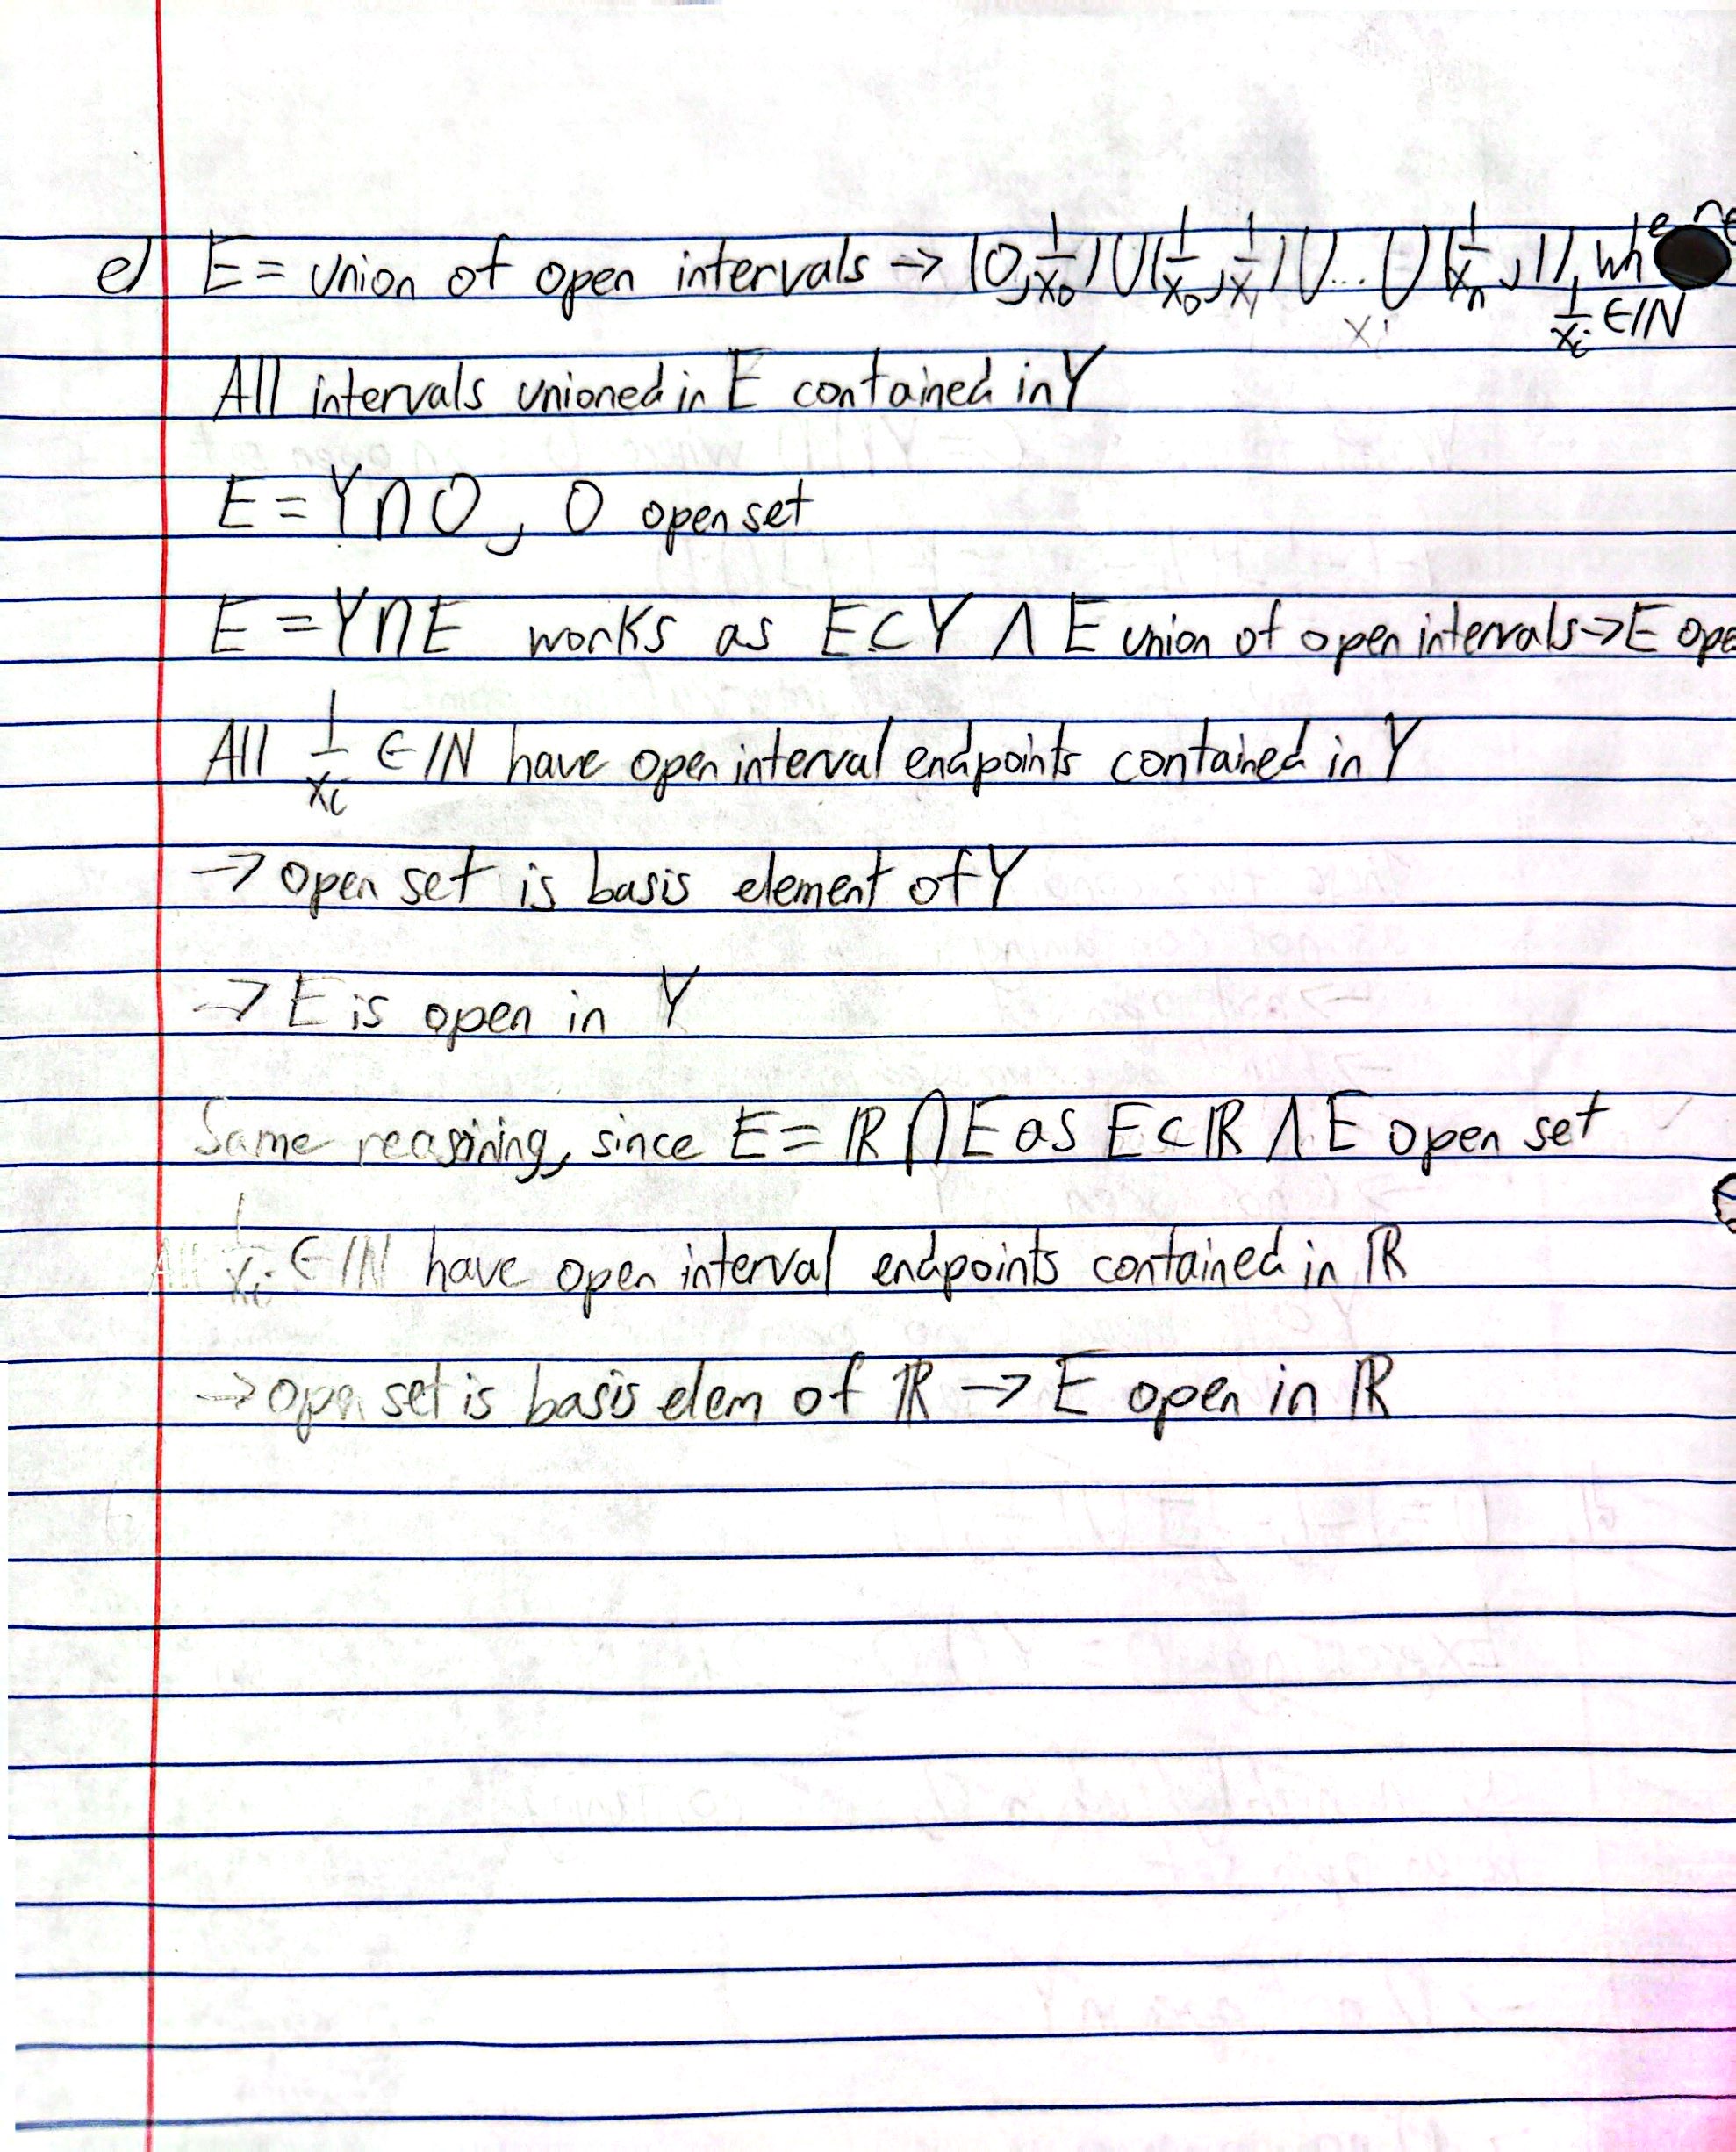 e) E = union of open intervals → (0, 1/x₀) ∪ (1/x₀, 1/x₁) ∪ ... ∪ (1/xₙ, 1), where
xᵢ 1/xᵢ ∈ ℕ
All intervals unioned in E contained in Y
E = Y ∩ O, O open set
E = Y ∩ E works as E ⊂ Y ∧ E union of open intervals → E ope
All 1/xᵢ ∈ ℕ have open interval endpoints contained in Y
→ open set is basis element of Y
→ E is open in Y
Same reasining, since E = ℝ ∩ E as E ⊂ ℝ ∧ E open set
All 1/xᵢ ∈ ℕ have open interval endpoints contained in ℝ
→ open set is basis elem of ℝ → E open in ℝ